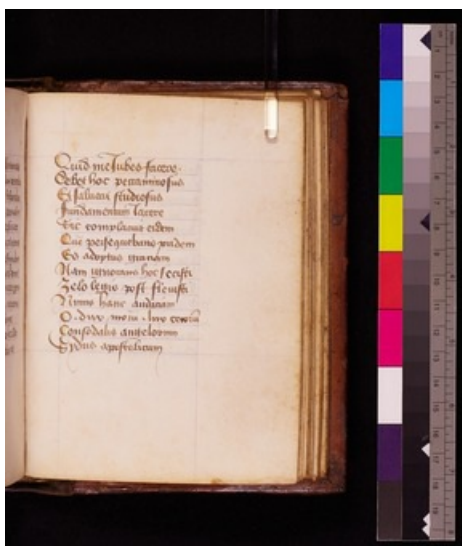 Quid me Iubes facere
Debet hoc peccaminosus
Et salutis studiosus
Fundamentum Iacere
Sic complacuit eidem
Que persequebaris pridem
Es adeptus gratiam
Nam ignorans hoc fecisti
Zelo legis post flevisti
Nimis hanc audatiam
O . dux . lux
Consodalis angelorum
Sydus apostolicum